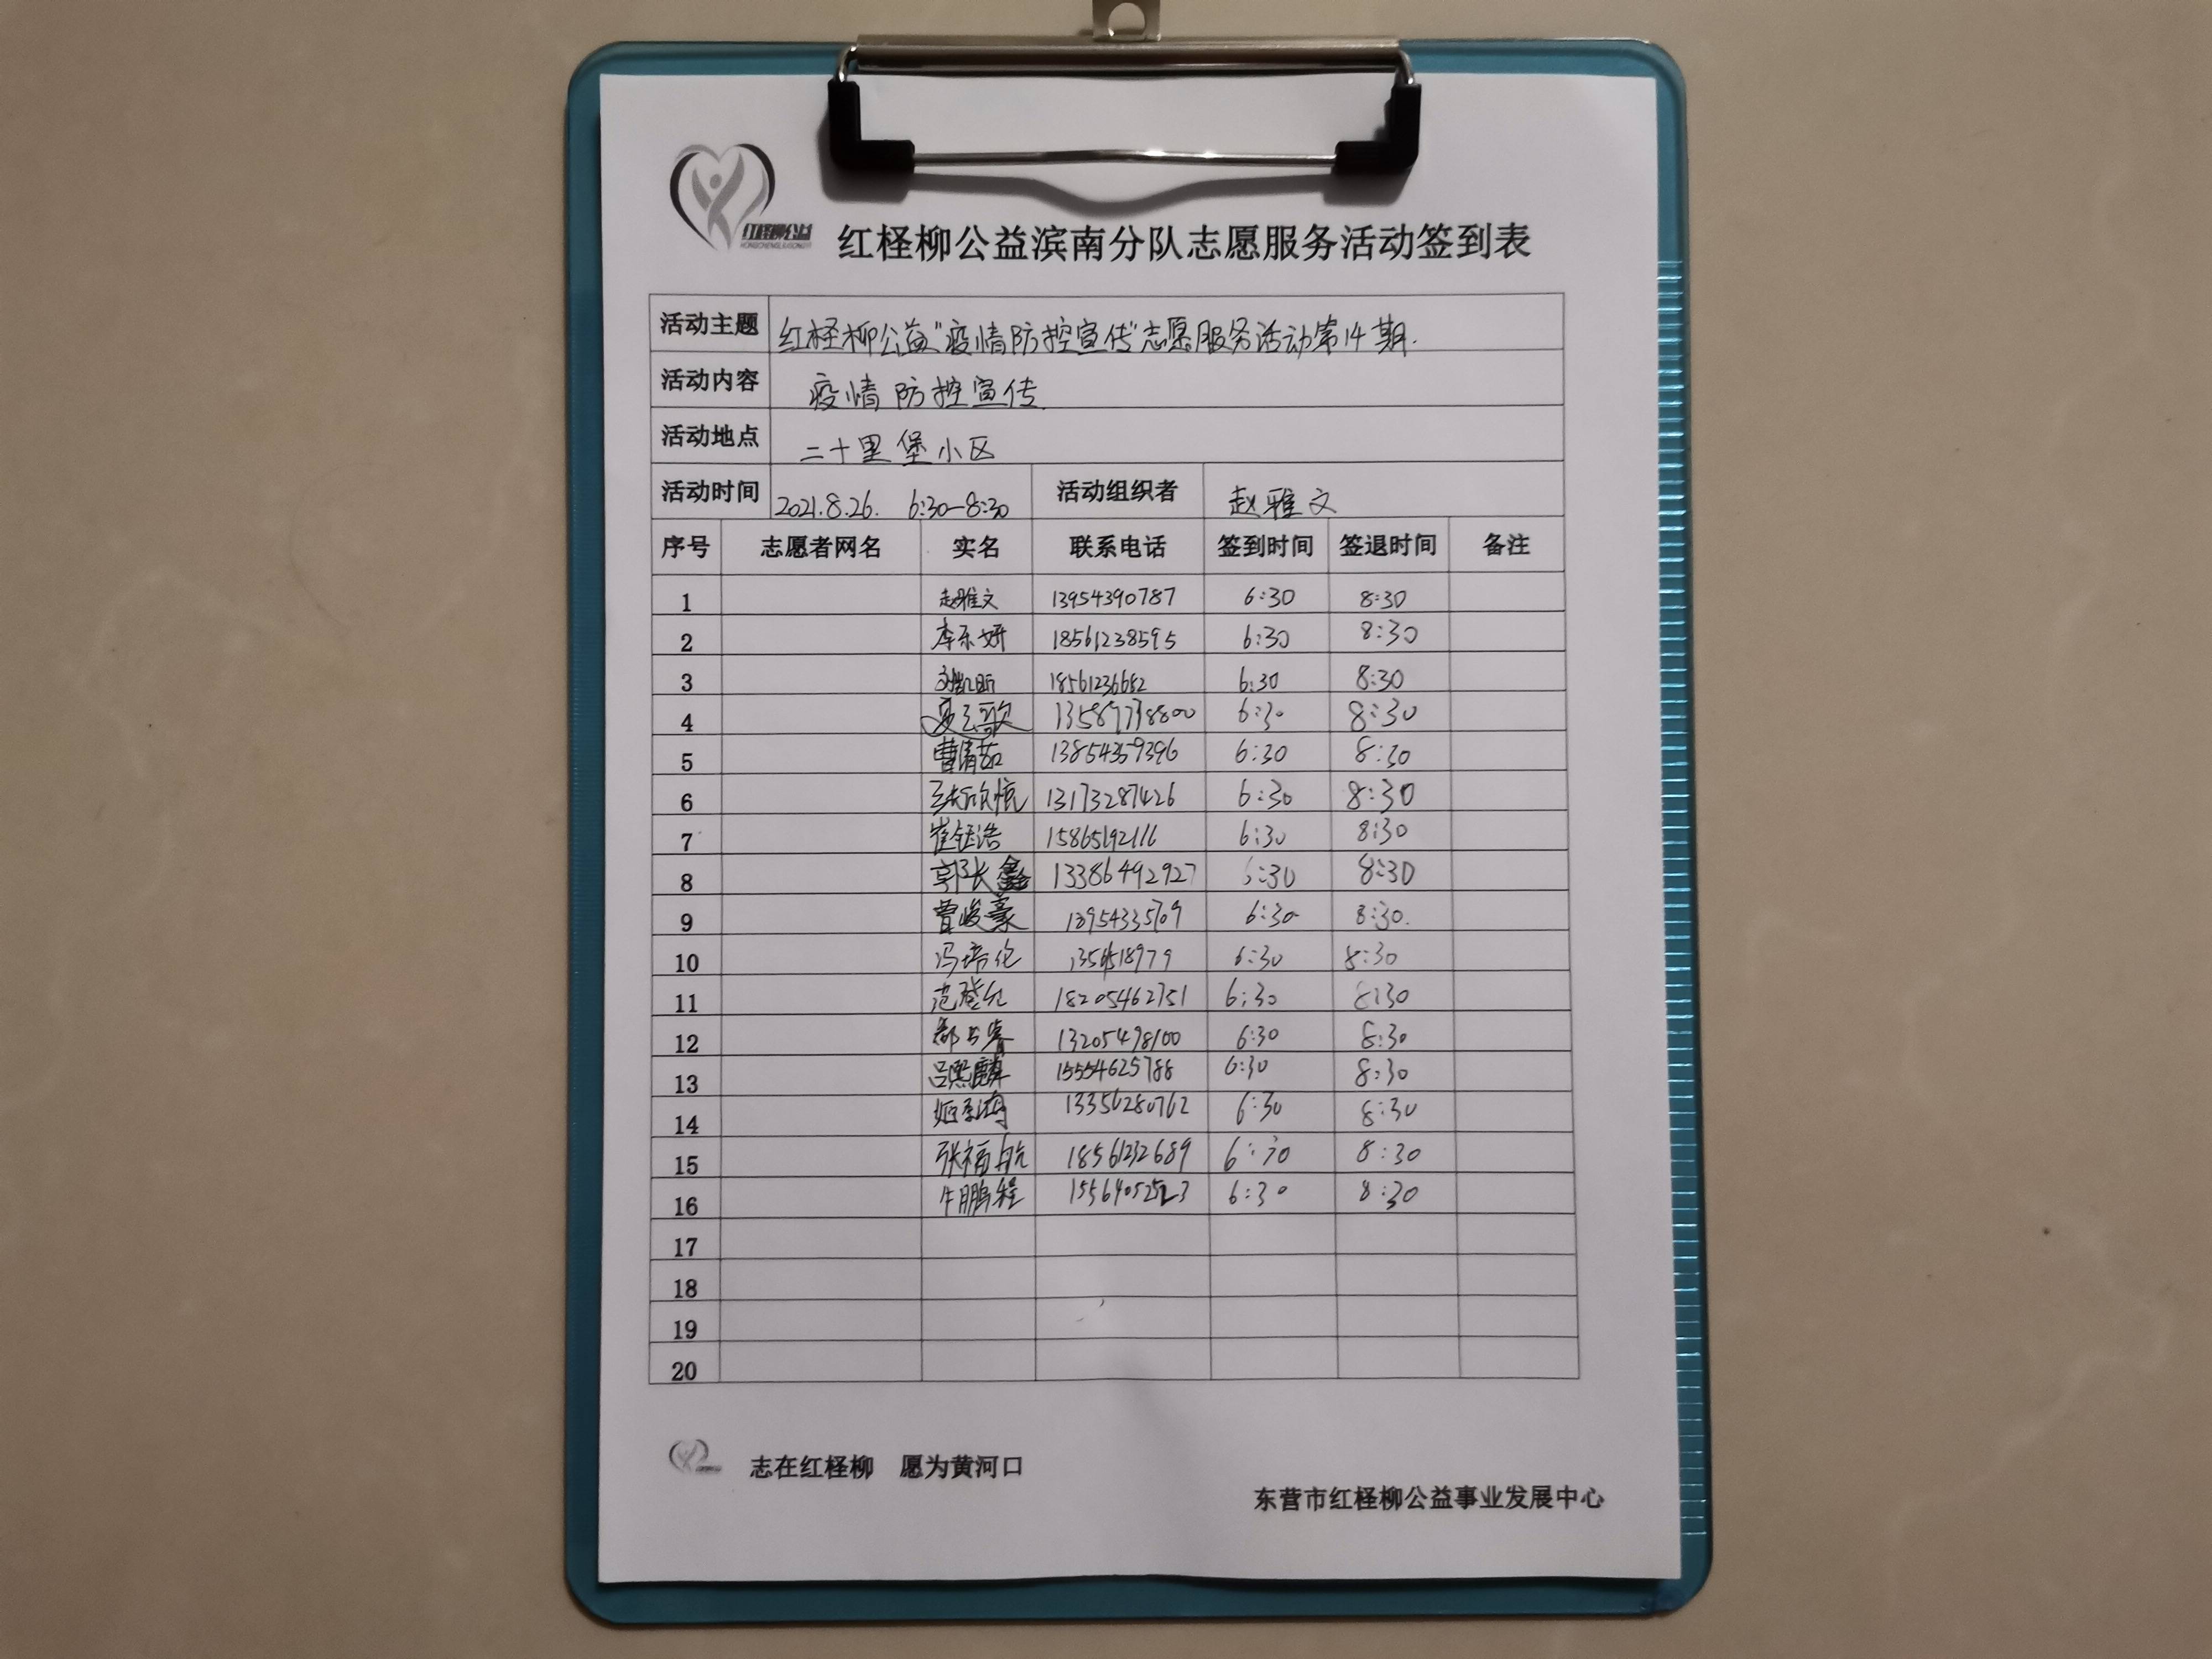 红柽柳公益
红柽柳公益滨南分队志愿服务活动签到表
活动主题 红柽柳公益"疫情防控宣传"志愿服务活动第14期.
活动内容 疫情防控宣传.
活动地点 二十里堡小区
活动时间 2021.8.26. 6:30-8:30 活动组织者 赵雅文
序号 志愿者网名 实名 联系电话 签到时间 签退时间 备注
1 赵雅文 13954390787 6:30 8:30
2 李乐妍 18561238595 6:30 8:30
3 18561236682 6:30 8:30
4 13589738800 6:30 8:30
5 曹清茹 13854359396 6:30 8:30
6 13173287426 6:30 8:30
7 崔钰浩 15865192116 6:30 8:30
8 郭张鑫 13386492927 6:30 8:30
9 曹峻豪 6:30 8:30.
10 冯培伦 6:30 8:30
11 18205462751 6:30 8:30
12 13205498100 6:30 8:30
13 吕熙麟 15554625788 6:30 8:30
14 13356280762 6:30 8:30
15 张福航 18561232689 6:30 8:30
16 牛鹏程 6:30 8:30
17
18
19
20
志在红柽柳 愿为黄河口
东营市红柽柳公益事业发展中心